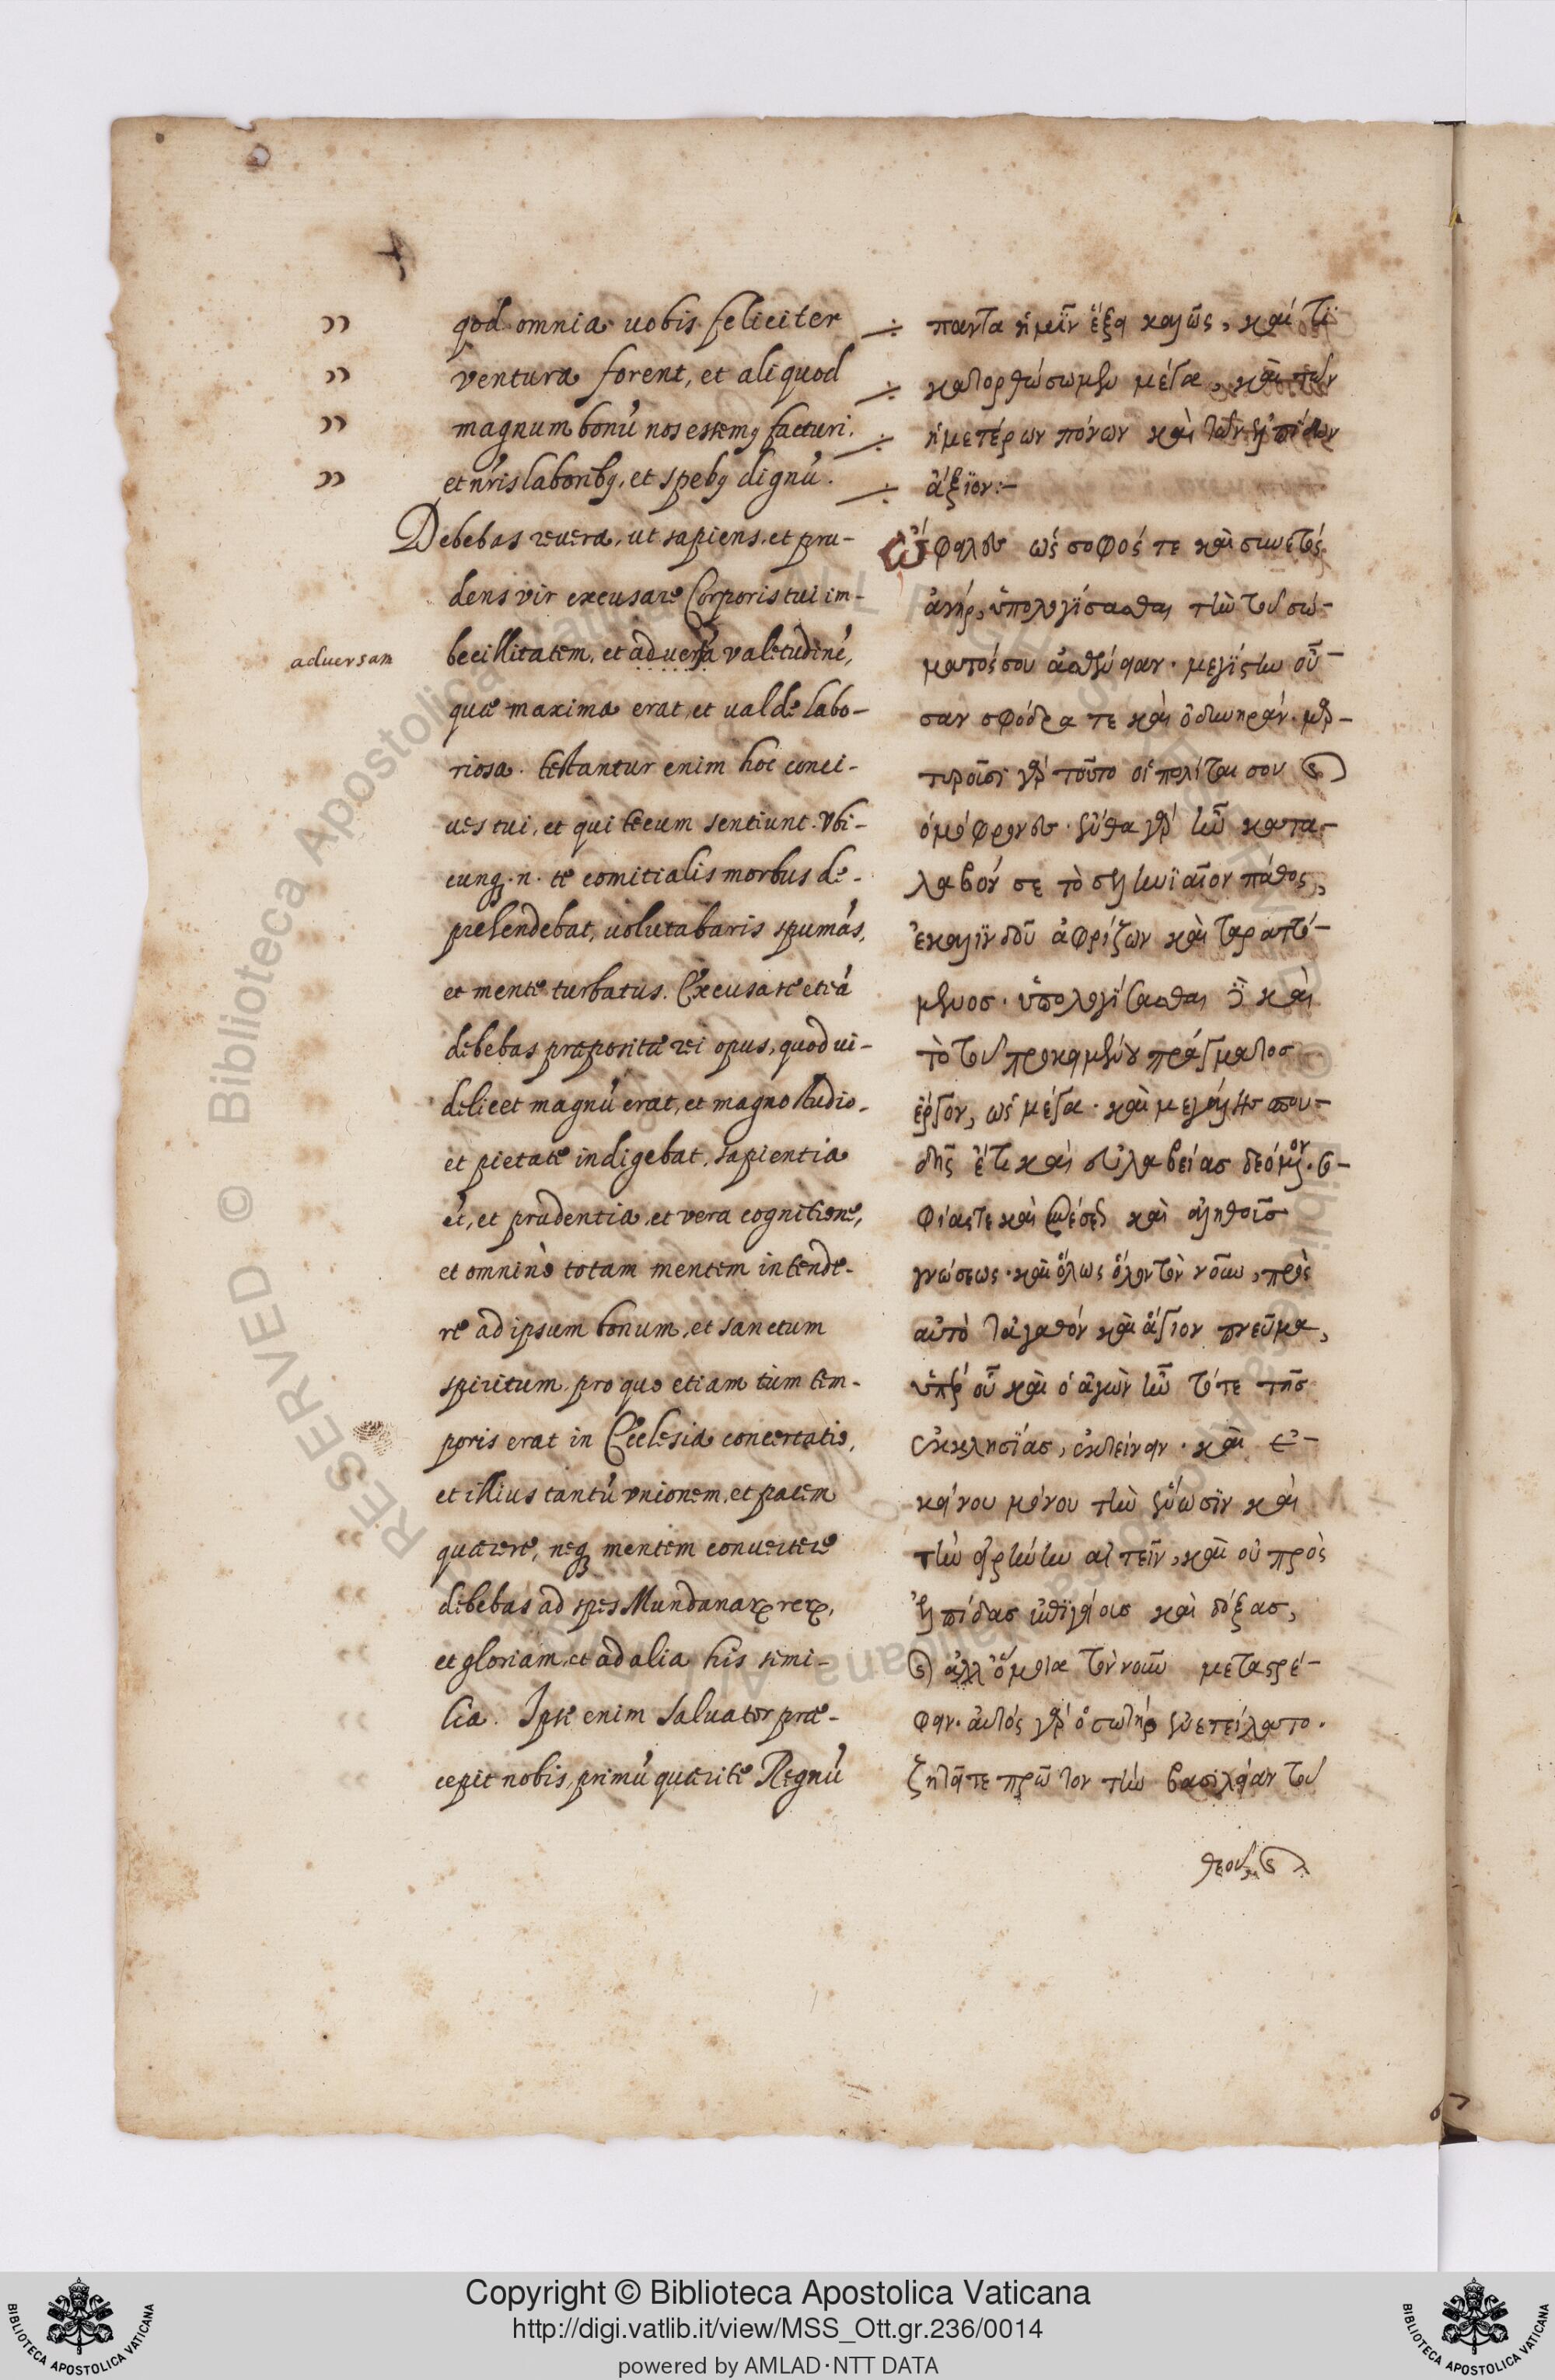 qod omnia uobis feliciter
ventura forent, et aliquod
magnum bonú nos essemꝰ facturi.
et nrĩs laboribꝰ, et spebꝰ dignú.
Debebas reuera, ut sapiens, et pru-
dens vir excusare Corporis tui im-
becillitatem, et aduersã valetudiné,
aduersam
quæ maxima erat, et ualde labo-
riosa. testantur enim hoc conci-
ues tui, et qui tecum sentiunt. Vbi-
cunqꝫ .n. te comitialis morbus de-
prehendebat, uolutabaris spumás,
et mente turbatus. Excusare etiá
debebas præpositæ rei opus, quod ui-
delicet magnú erat, et magno studio-
et pietate indigebat, sapientia
ét, et prudentia, et vera cognitione,
et omninò totam mentem intende-
re ad ipsum bonum, et sanctum
spiritum, pro quo etiam tùm tem-
poris erat in Ecclesia concertatio,
et illius tantú vnionem, et pacem
quærere, neqꝫ mentem conuertere
debebas ad spes Mundanaꝝ reꝝ,
et gloriam, et ad alia his simi-
lia. Ipse enim Saluator præ-
cepit nobis, primú quærite Regnú
παντα ἡμῖν ἕξει καλῶς, καί τι
κατορθώσωμεν μέγα, καὶ τῶν
ἡμετέρων πόνων καὶ τῶν ἐλπίδων
ἄξϊον:-
Ὤφειλες ὡς σοφός τε καὶ συνετός
ἀνήρ, ὑπολογίσασθαι τὴν τοῦ σώ-
ματός σου ἀσθένειαν. μεγίστην οὖ-
σαν σφόδρα τε καὶ ὀδυνηράν. μαρ-
τυροῦσι γὰρ τοῦτο οἱ πολίται σου καὶ
ὁμόφρονες. ἔνθα γὰρ ἦν κατα-
λαβόν σε τὸ σεληνιαῖον πάθος,
ἐκαλινδοῦ ἀφρίζων καὶ ταραττό-
μενοσ. ὑπολογίσασθαι δὲ καὶ
τὸ τοῦ προκειμένου πράγματοσ
ἔργον, ὡς μέγα. καὶ μεγάλης σπου-
δῆς ἔτι καὶ εὐλαβείασ δεόμενον. σο-
φίας τε καὶ συνέσεως καὶ ἀληθοῦσ
γνώσεως. καὶ ὅλως ὅλον τὸν νοῦν, πρὸς
αὐτὸ τἀγαθόν καὶ ἅγιον πνεῦμα,
ὑπὲρ οὗ καὶ ὁ ἀγὼν ἦν τότε τῆσ
ἐκκλησίασ, ἐκτείνειν. καὶ ἐ-
κείνου μόνου τὴν ἕνωσϊν καὶ
τὴν εἰρήνην αἰτεῖν, καὶ οὐ πρὸς
ἐλπίδασ ἐπιγείουσ καὶ δόξασ,
καὶ ἀλλ' ὅμοια τὸν νοῦν μεταστρέ-
φειν. αὐτός γὰρ ὁ σωτὴρ ἐνετείλατο.
ζητεῖτε πρῶτον τὴν βασιλείαν τοῦ
θεοῦ, καὶ
Copyright © Biblioteca Apostolica Vaticana
http://digi.vatlib.it/view/MSS_Ott.gr.236/0014
powered by AMLAD·NTT DATA
BIBLIOTECA APOSTOLICA VATICANA
BIBLIOTECA APOSTOLICA VATICANA